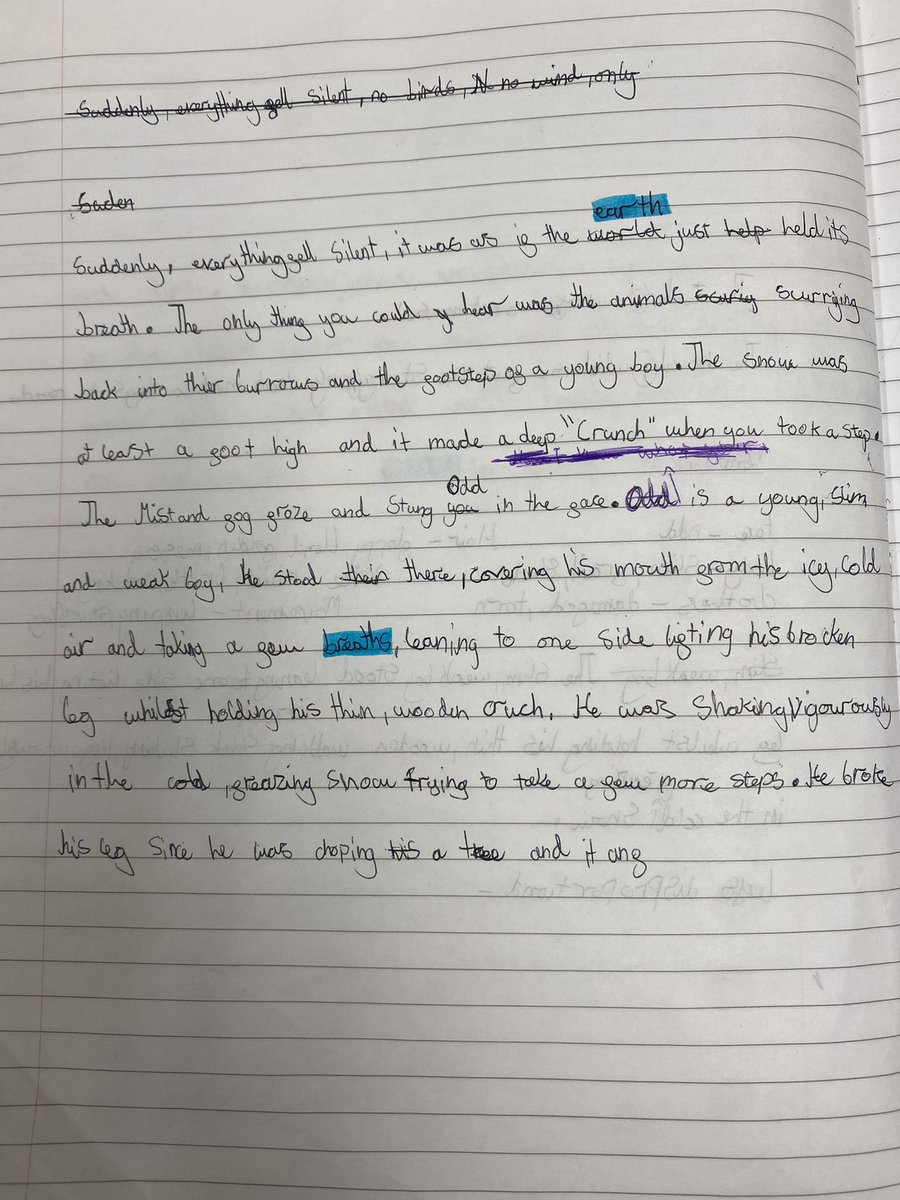 Suddenly, everything fell silent, no birds, N no wind, only
Suden
earth
Suddenly, everything fell silent, it was as if the world just help held its
breath. The only thing you could y hear was the animals scuriy scurrying
back into thier burrows and the footstep of a young boy. The snow was
at least a foot high and it made a deep "Crunch" when you took a step.
Odd
The Mist and fog froze and stung you in the face. Odd is a young, slim
and weak boy, He stood thein there, covering his mouth from the icy, cold
air and taking a few breaths, leaning to one side lifting his brocken
leg whilst holding his thin, wooden cruch. He was shaking vigourously
in the cold, freazing snow trying to take a few more steps. He broke
his leg since he was choping his a tree and it